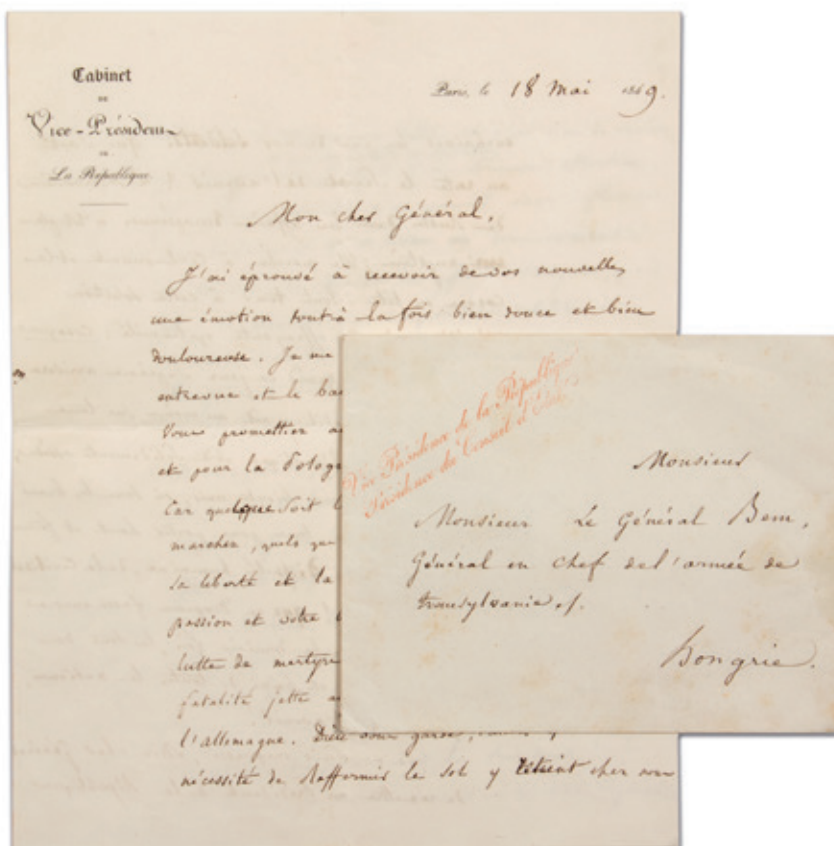 Cabinet
DU
Vice-Président
DE
La République.
Paris, le 18 Mai 1849.
Mon cher Général,
J'ai éprouvé à recevoir de vos nouvelles,
une émotion tout à la fois bien douce et bien
douloureuse. Je me
entrevue et le
Vous promettier
et pour la
Car quelque soit
marcher, quels que
sa liberté et la
passion et votre
lutte de martyre
fatalité jette
l'allemagne. Dieu vous garde,
nécessité de Raffermir le sol y retient cher
Vice Présidence de la République
Présidence du Conseil d'Etat
Monsieur
Monsieur Le Général Bem,
Général en chef de l'armée de
transylvanie
hongrie.